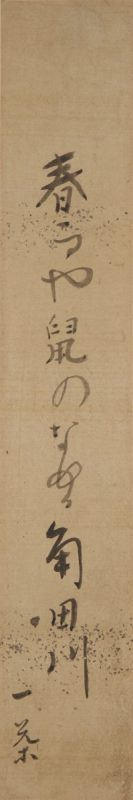 春雨や鼠のなめる角田川
一茶